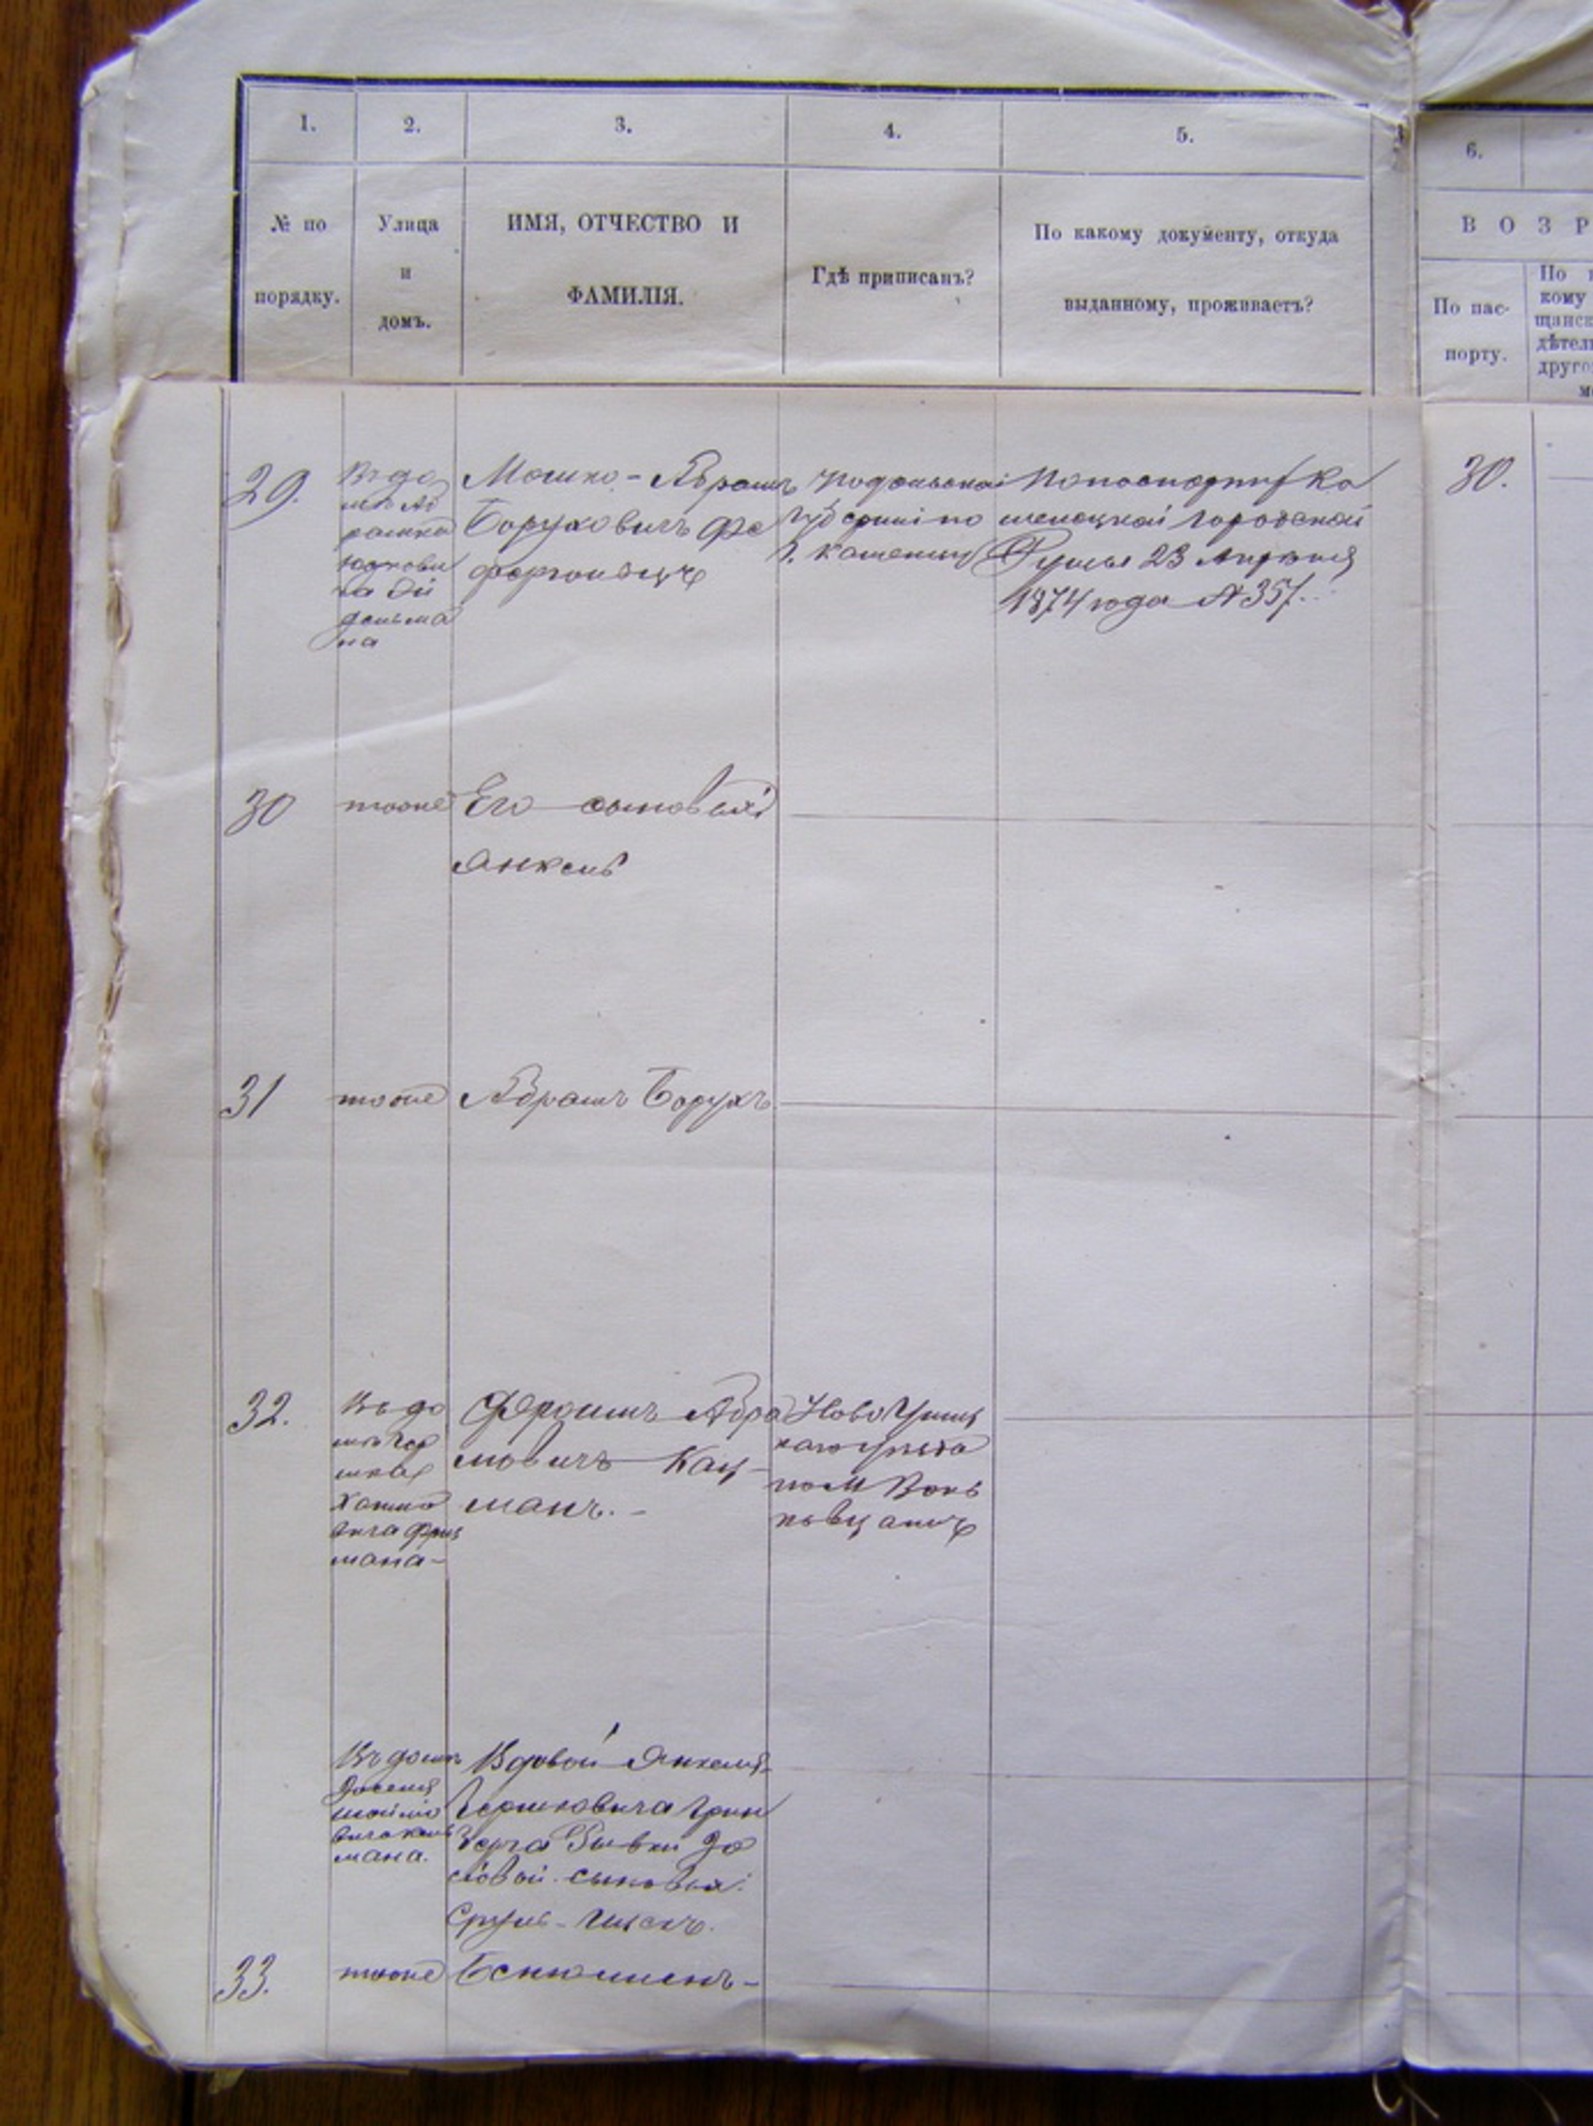 1.
2.
3.
4.
5.
6.
№ по
порядку.
Улица
и
домъ.
ИМЯ, ОТЧЕСТВО И
ФАМИЛІЯ.
Гдѣ приписанъ?
По какому документу, откуда
выданному, проживаетъ?
ВОЗР
По пас-
порту.
По
кому
щанск
дѣтел
друго
29.
Въ до
мѣ Аб
рамка
на
Мошко-Абрамъ
Боруховичъ Фе
Подольской
Губерніи по
г. Каменцу
По паспорту Ка
менецкой городской
Думы 23 Апрѣля
1874 года № 357.
30.
30
тоже
Его сыновья:
Янкель
31
тоже
Абрамъ Борухъ
32.
Въ до
мѣ Гер
шка
Хаимо
вича
мана-
Абра
мовичъ Кац-
манъ.-
Ново Ушиц
каго уѣзда
по М
Въ домѣ
мана.
Вдовой Янкеля
Гершковича Грин
берга Рывки Іо
сіовой сыновья:
Сруль-
33.
тоже
Бенюминъ-